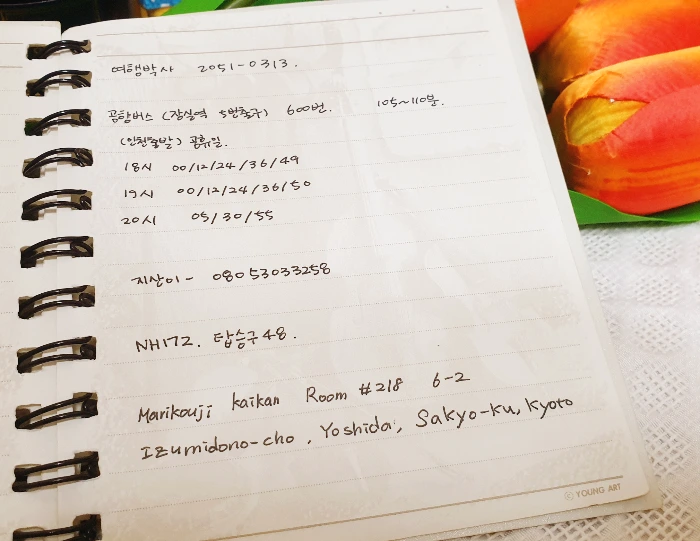 여행박사 2051-0313.
공항버스 (잠실역 5번출구) 600번. 105~110분.
(인천출발) 공휴일.
18시 00/12/24/36/49
19시 00/12/24/36/50
20시 05/30/55
지산이 - 08053033258
NH172. 탑승구 48.
Marikouji kaikan Room #218 6-2
Izumidono-cho, Yoshida, Sakyo-ku, Kyoto
© YOUNG ART